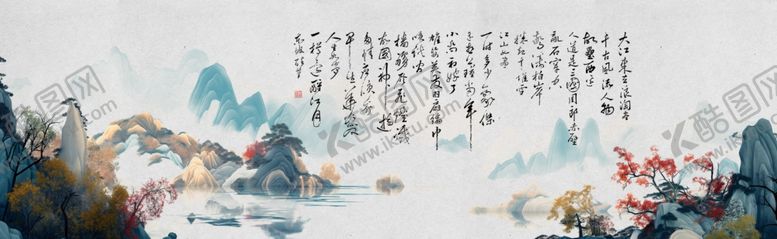 大江東去浪淘尽
千古風流人物
故壘西邊
人道是三國周郎赤壁
亂石穿空
驚濤拍岸
捲起千堆雪
江山如畫
一时多少豪傑
遥想公瑾當年
小喬初嫁了
雄姿英发羽扇綸巾
談笑间
檣櫓灰飛煙滅
故國神游
多情應笑我
早生华髮
人生如夢
一樽還酹江月
酷图网